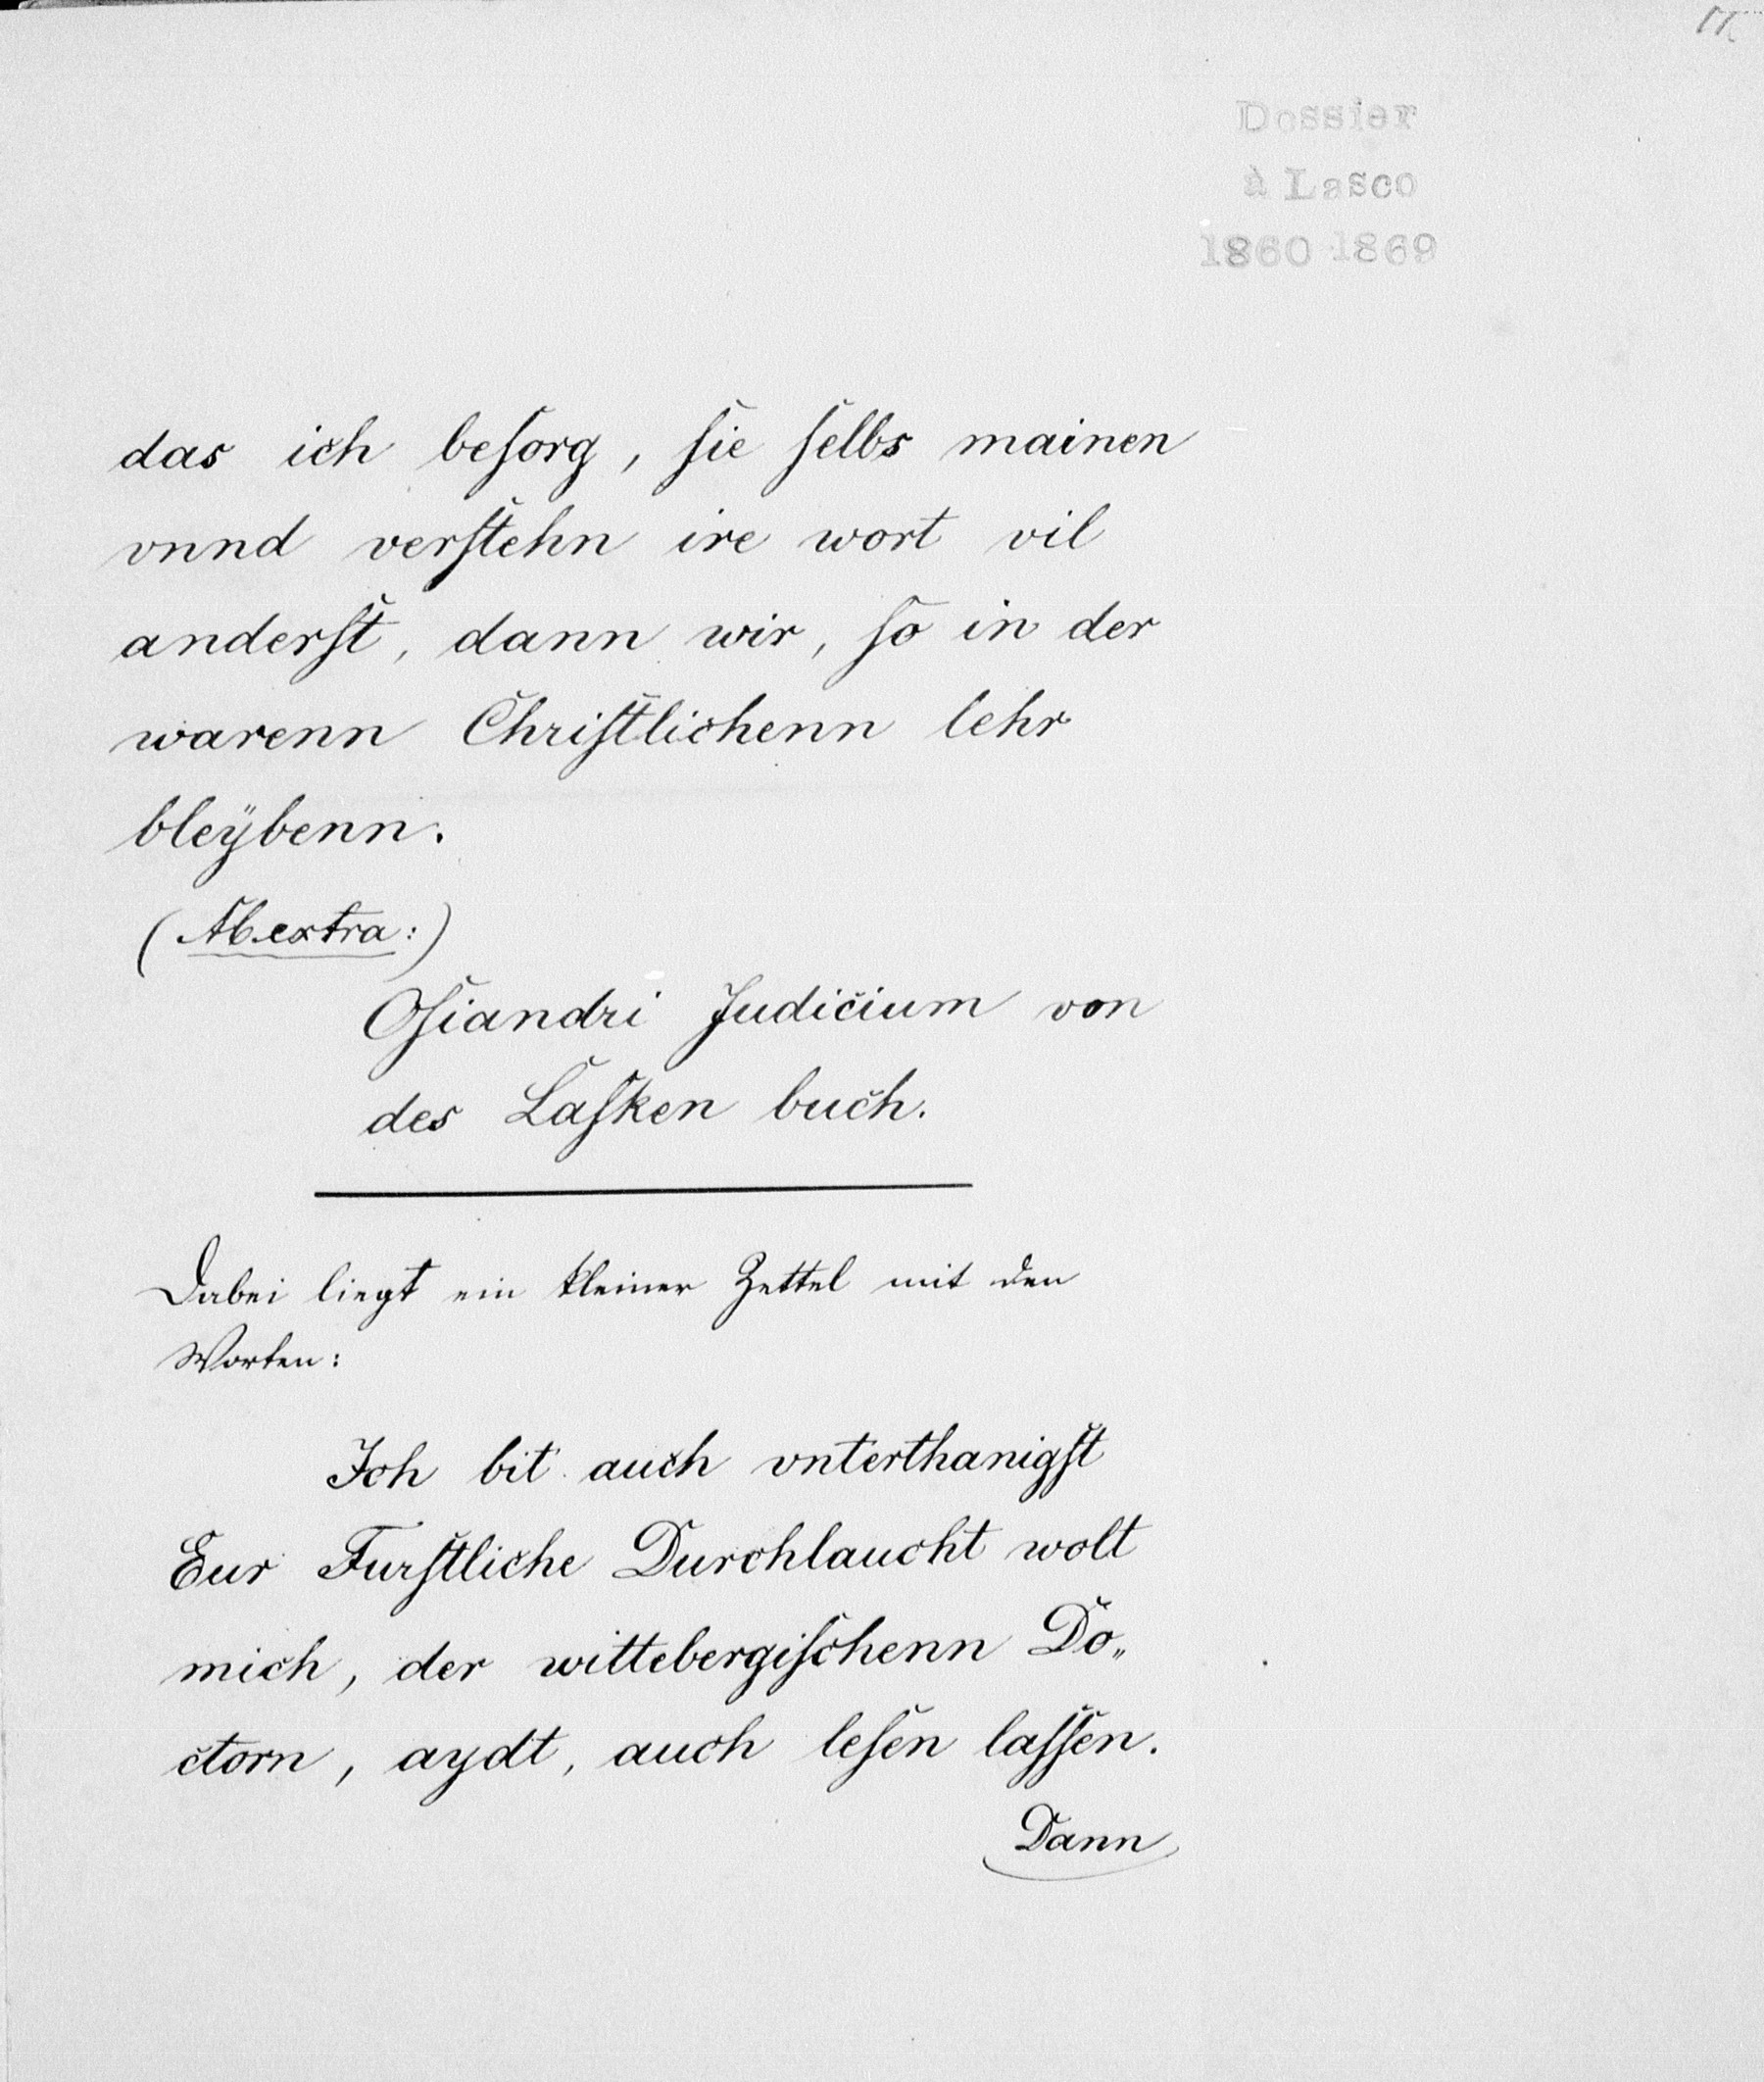 Dossier
à Lasco
1860 1869
das ich beſorg, ſie ſelbs mainen
vnnd verſtehn ire wort vil
anderſt, dann wir, ſo in der
warenn Chriſtlichenn lehr
bleÿbenn.
(Ab extra:)
Oſiandri Judicium von
des Laſken buch.
Dabei liegt ein kleiner Zettel mit den
Worten:
Ich bit auch vnterthanigſt
Eur Furſtliche Durchlaucht wolt
mich, der wittebergiſchenn Do„
ctorn, aydt, auch leſen laſſen.
Dann